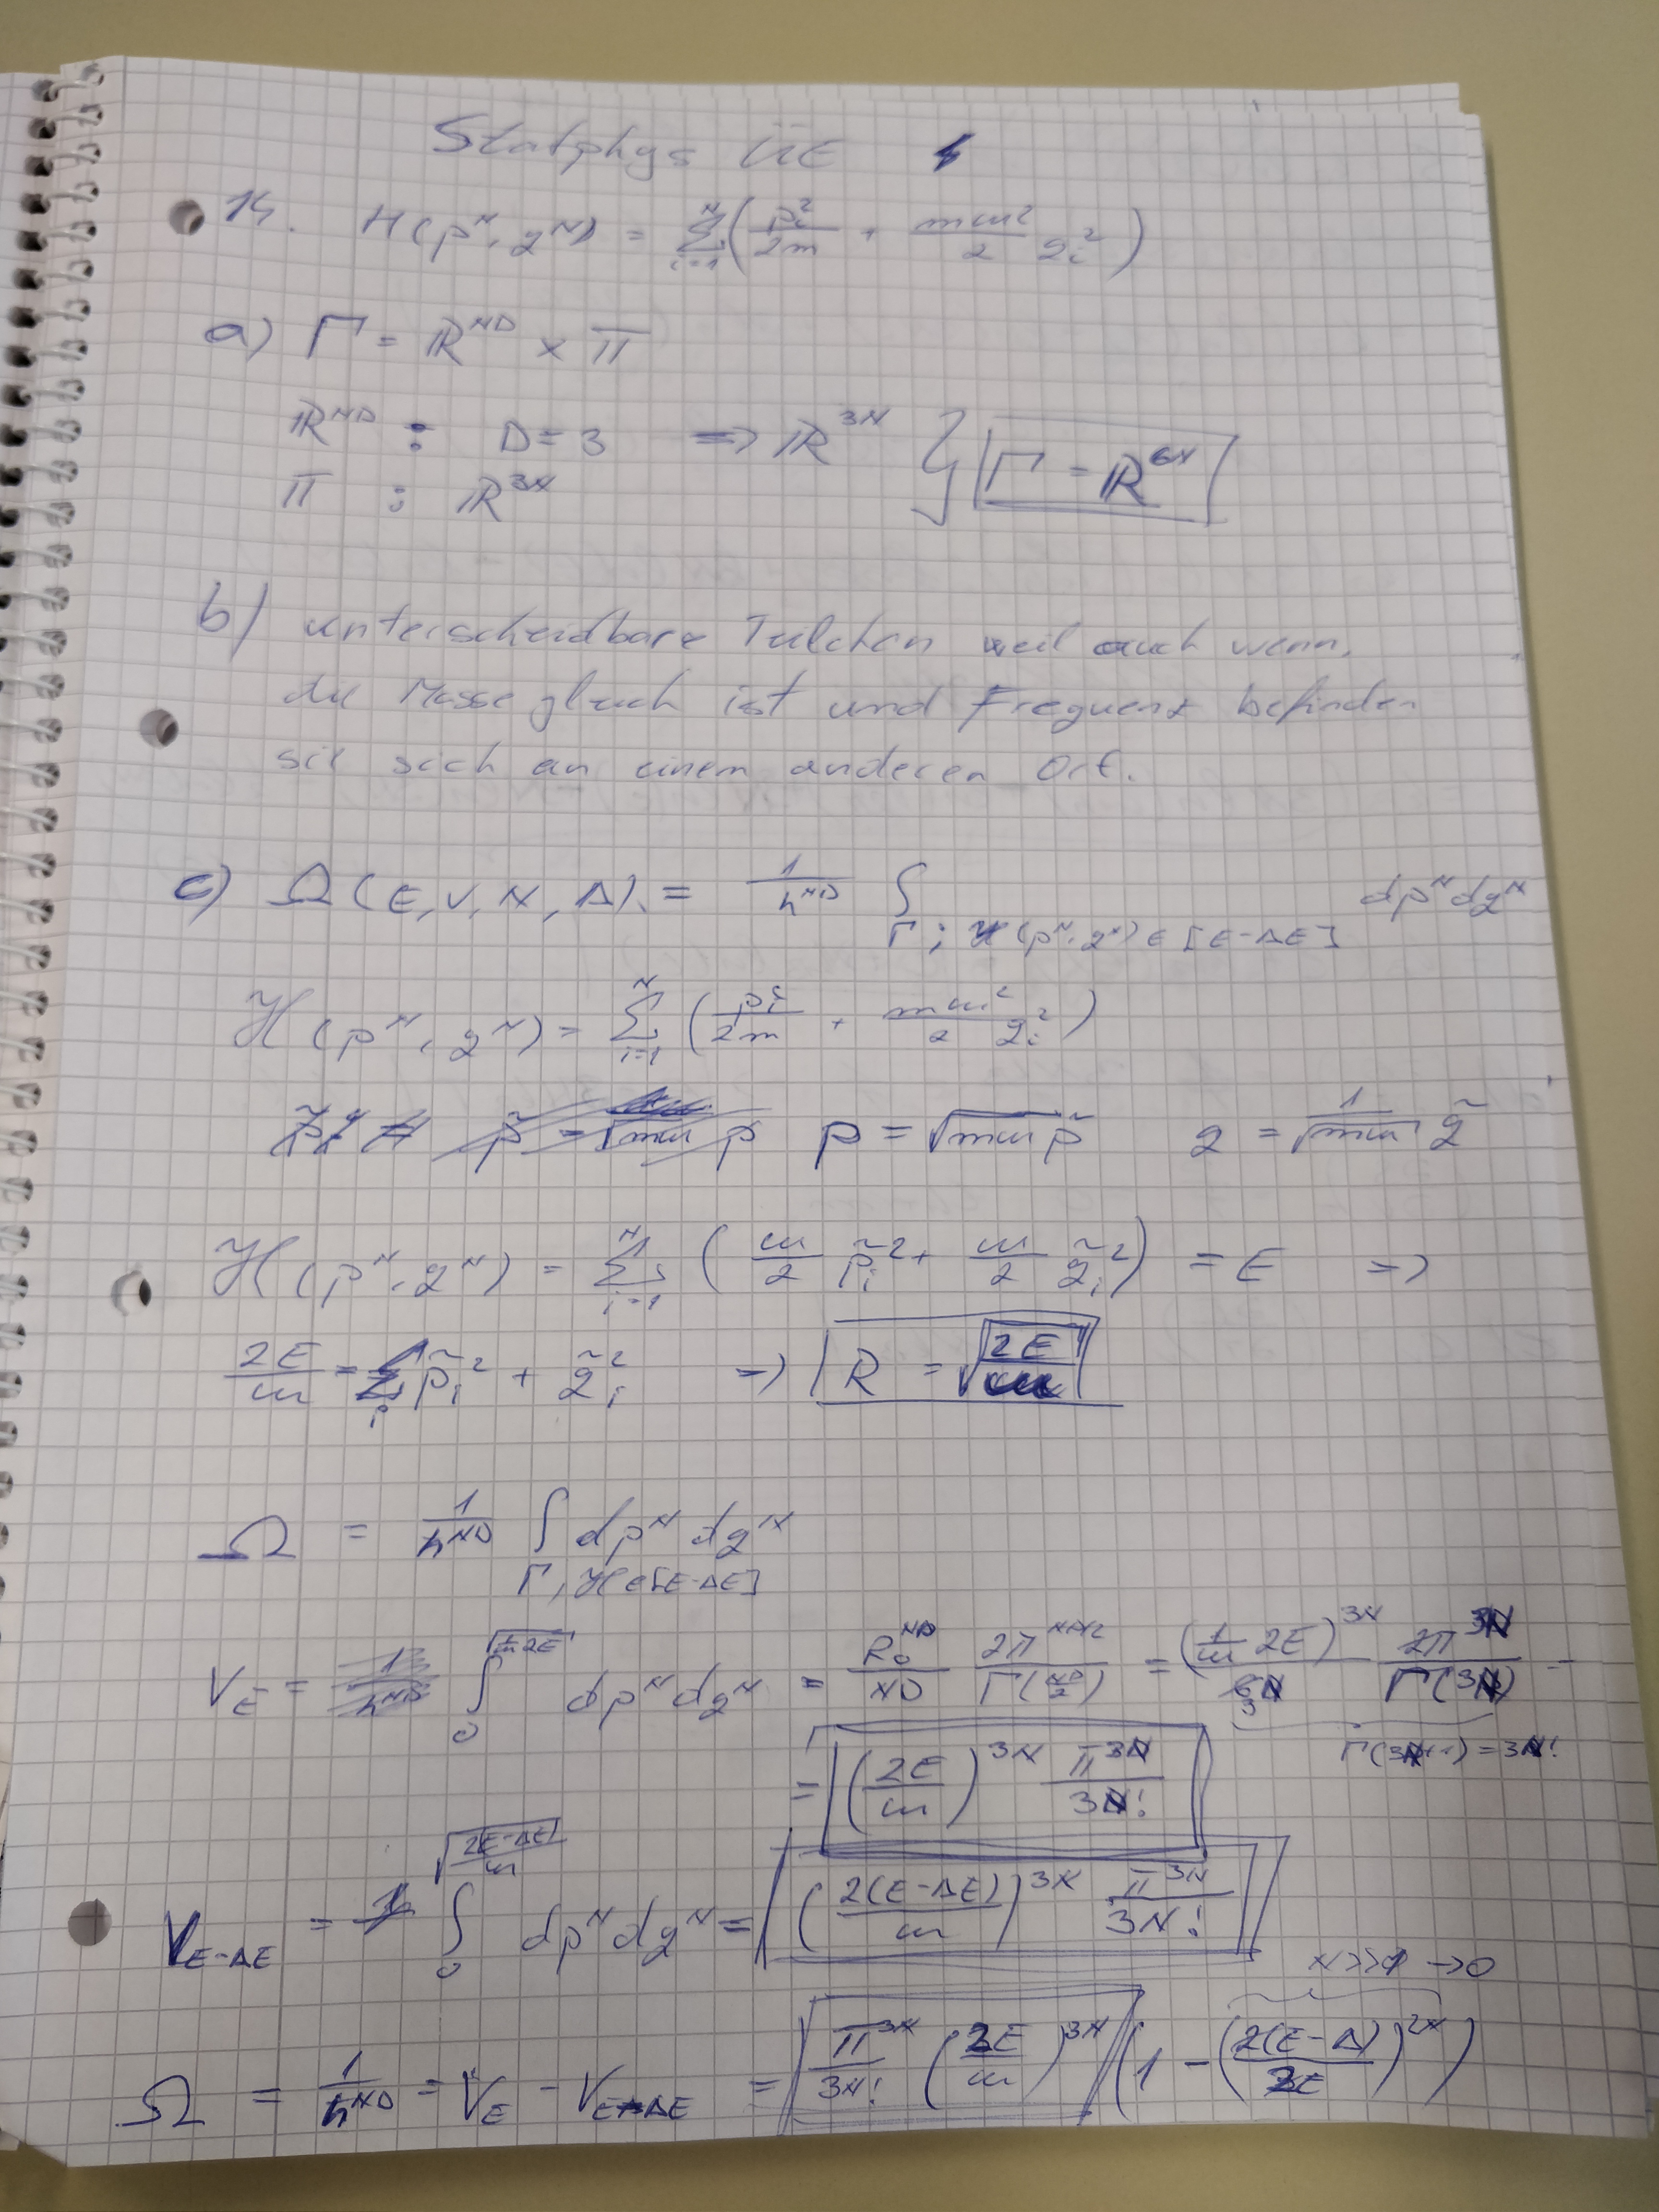 Statphys ÜE 4
14. H(p^N, q^N) = Σ_{i=1}^N (p_i²/2m + mω²/2 q_i²)
a) Γ = ℝ^{ND} × Π
ℝ^{ND} : D=3 => ℝ^{3N} } Γ = ℝ^{6N}
Π : ℝ^{3N}
b) unterscheidbare Teilchen weil auch wenn,
die Masse gleich ist und Frequenz befinden
sie sich an einem anderen Ort.
c) Ω(E,V,N,Δ) = 1/h^{ND} ∫_{Γ; H(p^N,q^N) ∈ [E-ΔE]} dp^N dq^N
H(p^N, q^N) = Σ_{i=1}^N (p_i²/2m + mω²/2 q_i²)
p = √mω p̃ q = 1/√mω q̃
H(p^N, q^N) = Σ_{i=1}^N (ω/2 p̃_i² + ω/2 q̃_i²) = E =>
2E/ω = Σ_i p̃_i² + q̃_i² => R = √(2E/ω)
Ω = 1/h^{ND} ∫_{Γ, H∈[E-ΔE]} dp^N dq^N
V_E = ∫_0^{√(1/ω 2E)} dp^N dq^N = R_0^{ND}/ND 2π^{ND/2}/Γ(ND/2) = (1/ω 2E)^{3N}/3N π^{3N}/Γ(3N) =
Γ(3N+1) = 3N!
= (2E/ω)^{3N} π^{3N}/3N!
V_{E-ΔE} = ∫_0^{√(2(E-ΔE)/ω)} dp^N dq^N = (2(E-ΔE)/ω)^{3N} π^{3N}/3N!
N>>1 → 0
Ω = 1/h^{ND} = V_E - V_{E-ΔE} = π^{3N}/3N! (2E/ω)^{3N} (1 - (2(E-Δ)/2E)^{2N})